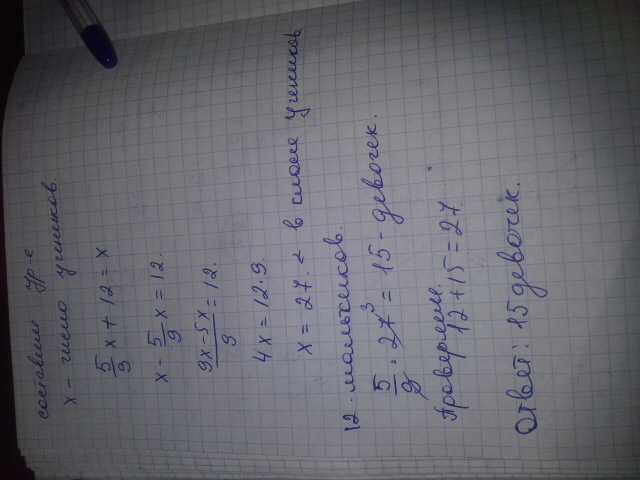 составим ур-е
x - число учеников.
5/9 x + 12 = x
x - 5/9 x = 12.
9x-5x/9 = 12.
4x = 12·9
x = 27. - в классе учеников
12 - мальчиков.
5/9 · 27³ = 15 - девочек.
Проверяем.
12 + 15 = 27
Ответ: 15 девочек.